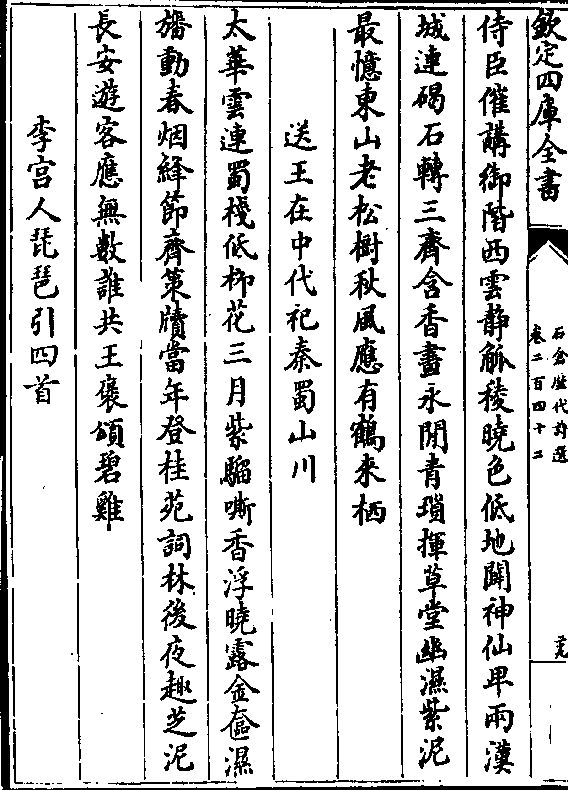 欽定四庫全書
石倉歷代詩選
卷二百四十二
侍臣催講御階西雲静觚稜曉色低地闢神仙卑兩漢
城連碣石轉三齊含香晝永閒青瑣揮草堂幽濕紫泥
最憶東山老松樹秋風應有鶴來栖
送王在中代祀秦蜀山川
太華雲連蜀棧低栁花三月紫騮嘶香浮曉露金匳濕
旛動春烟絳節齊策牘當年登桂苑詞林後夜趣芝泥
長安遊客應無數誰共王褒頌碧雞
李宫人琵琶引四首